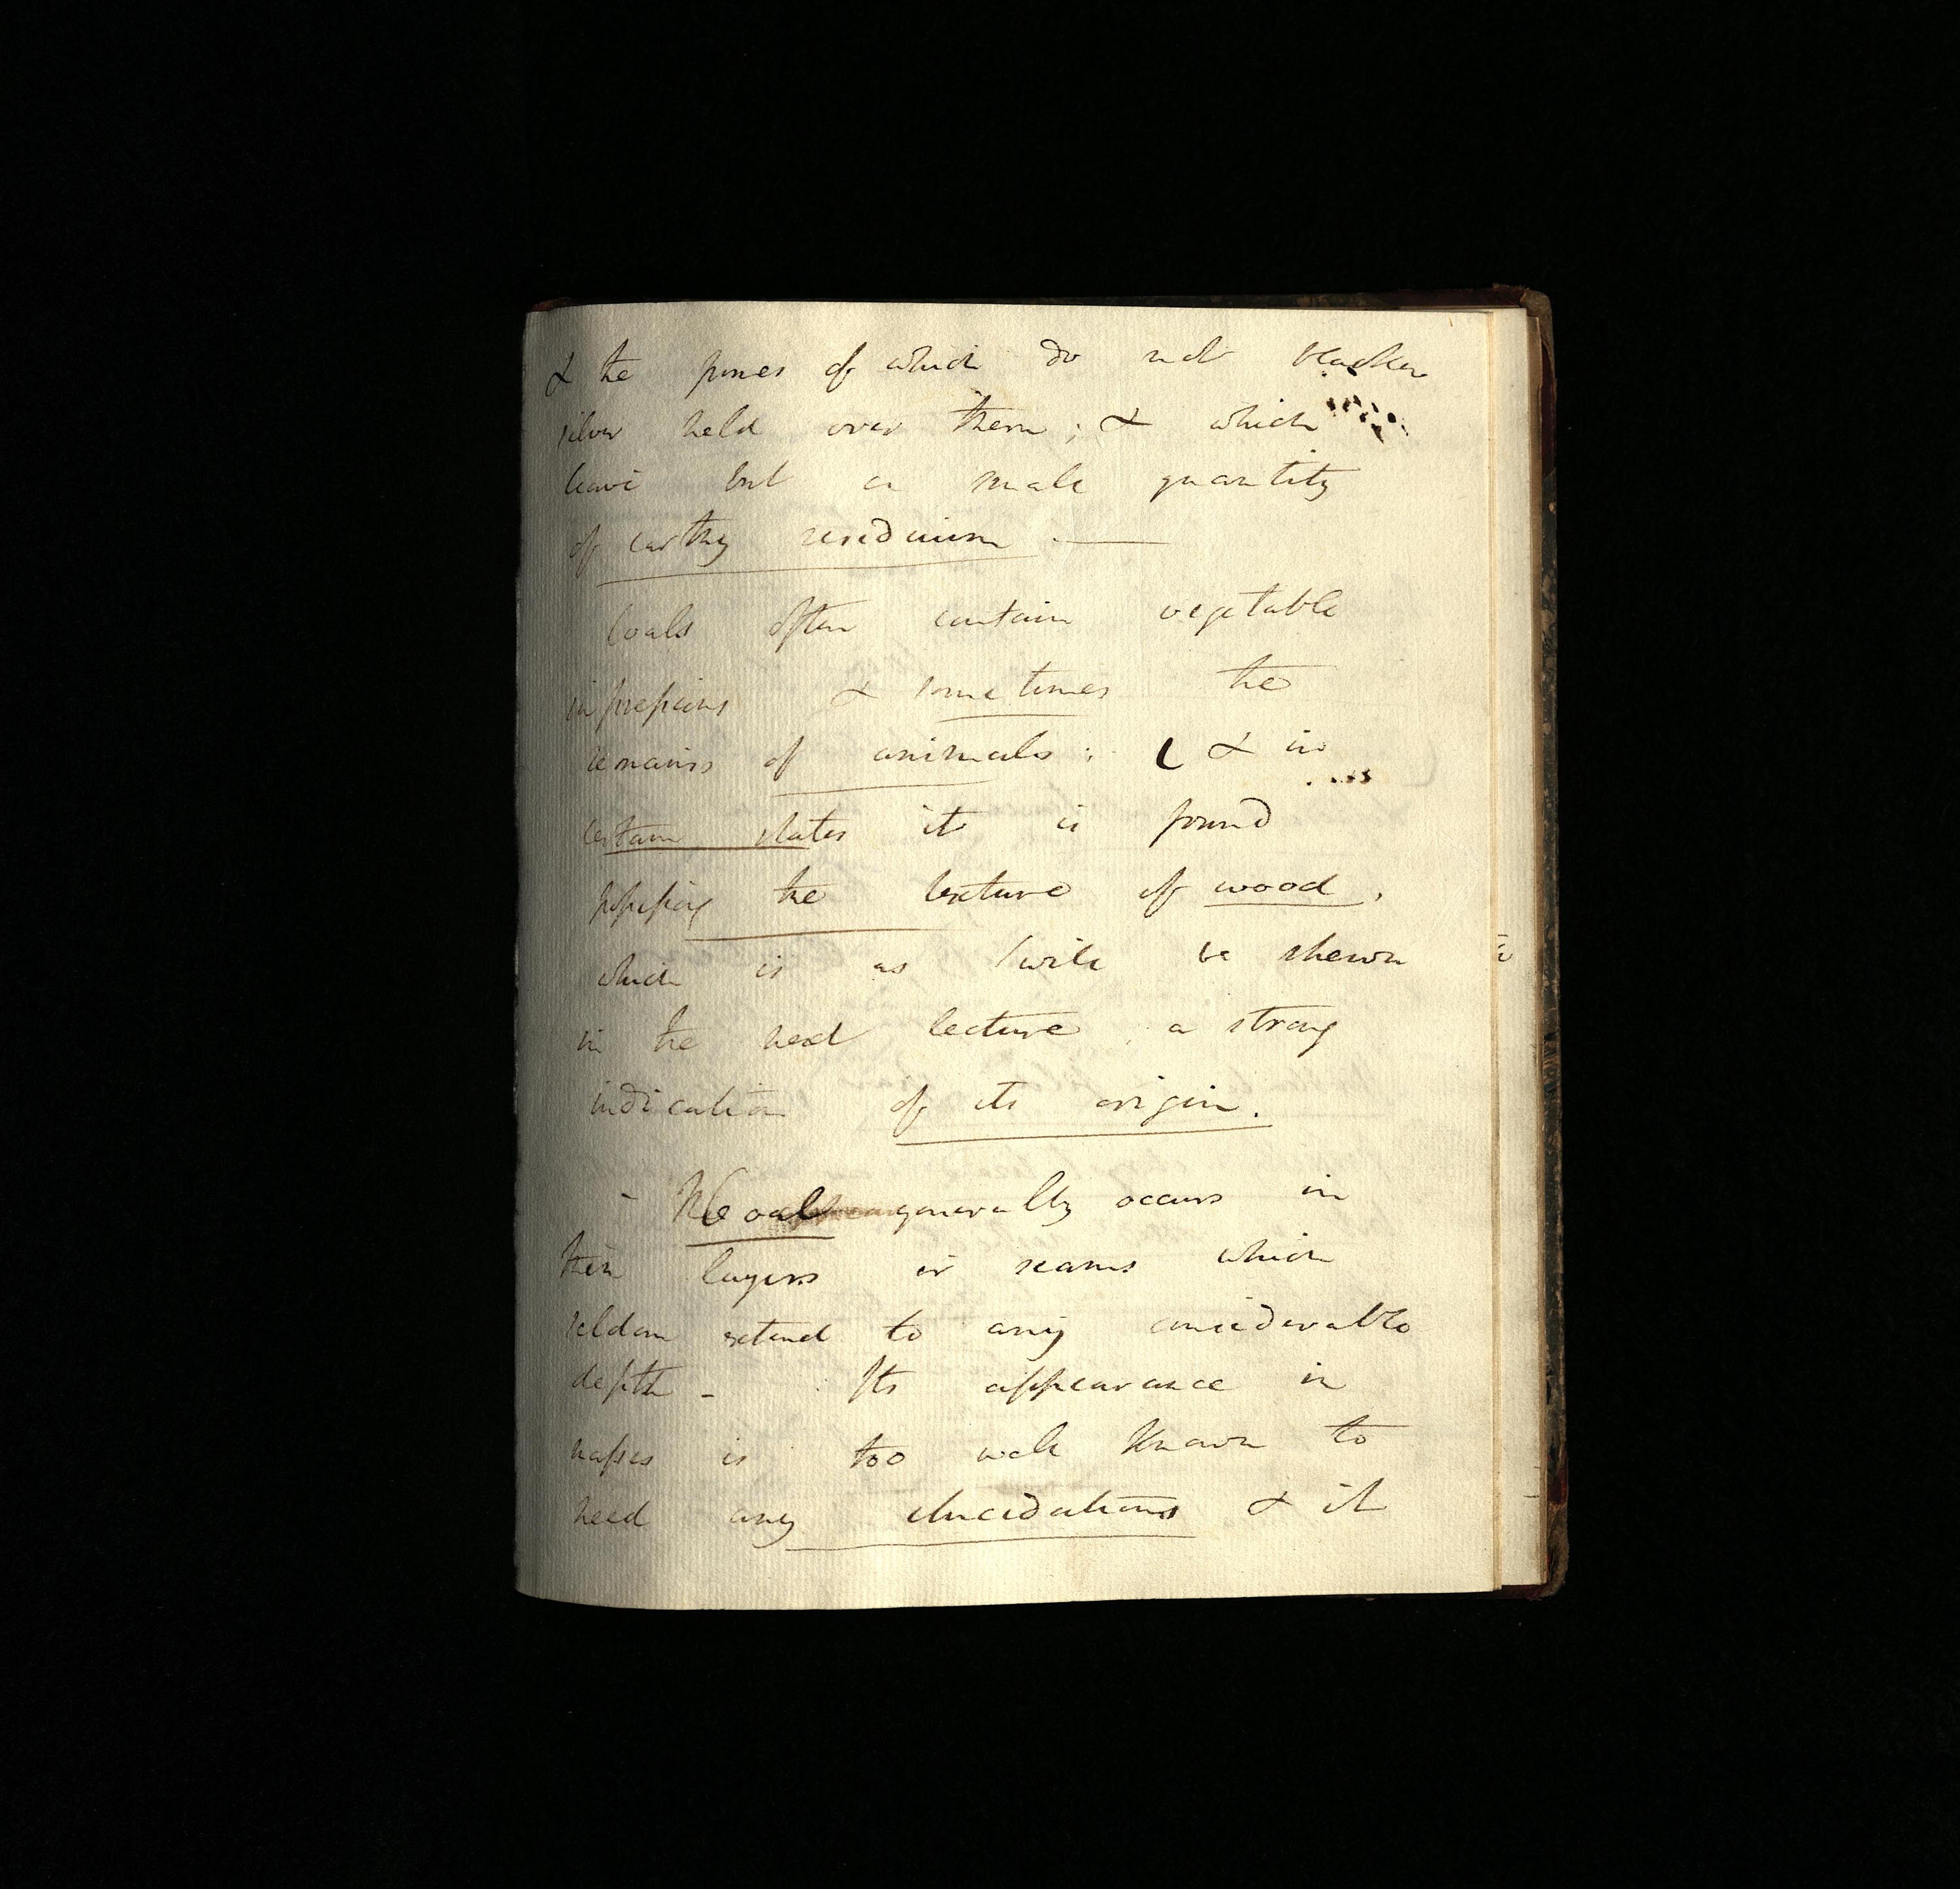 & the fumes of which do not blacken
silver held over them; & which
leave but a small quantity
of earthy residuum. —
Coals often contain vegetable
impressions & sometimes the
remains of animals: & in
certain states it is found
possessing the texture of wood,
which is as I will be shewn
in the next lecture a strong
indication of its origin.
- Coal generally occurs in
thin layers or seams which
seldom extend to any considerable
depth - Its appearance in
masses is too well known to
need any elucidations & it